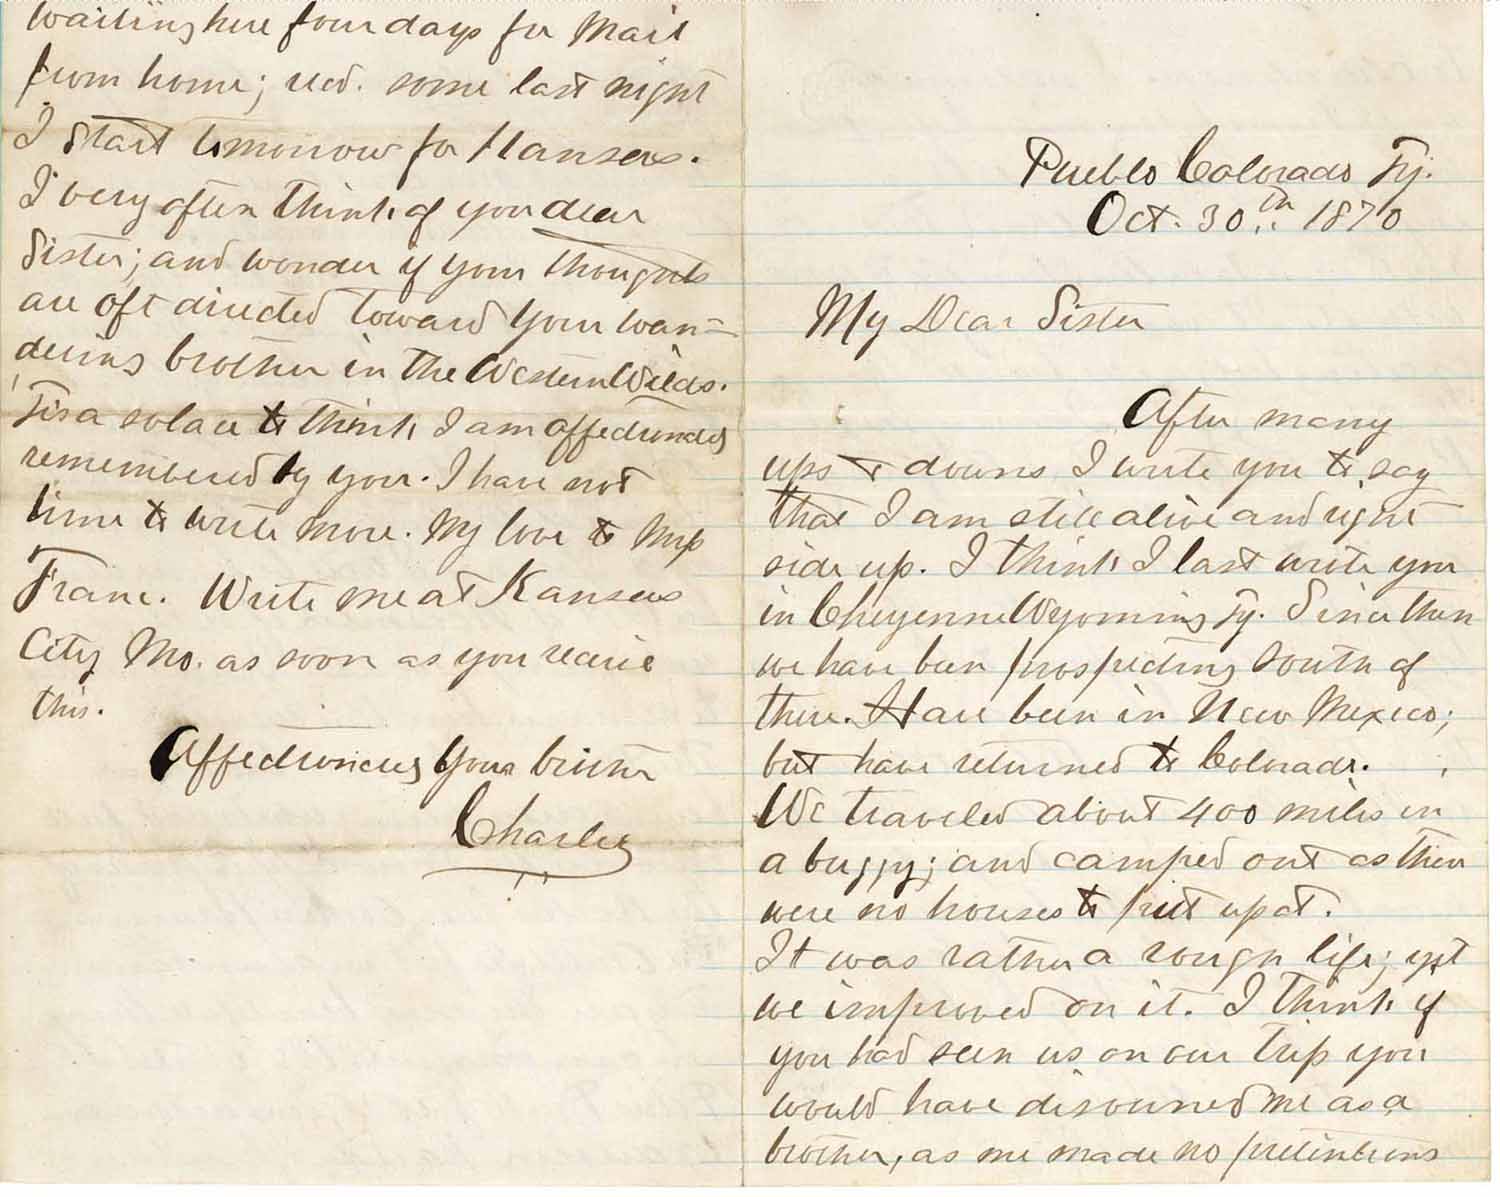 Pueblo Colorado Ty.
Oct. 30th 1870
My Dear Sister
After many
ups & downs I write you to say
that I am still alive and right
side up. I think I last write you
in Cheyenne Wyoming Ty. Since then
we have been prospecting South of
there. Have been in New Mexico;
but have returned to Colorado.
We traveled about 400 miles in
a buggy; and camped out as there
were no houses to put up at.
It was rather a rough life; yet
we improved on it. I think if
you had seen us on our trip you
would have disowned me as a
brother, as we made no pretentions
waiting here four days for Mail
from home; recd. some last night
I start tomorrow for Kansas.
I very often think of you dear
Sister; and wonder if your thoughts
are oft directed toward your wan=
dering brother in the Western Wilds.
'Tis a solace to think I am affectionately
remembered by you. I have not
time to write more. My love to
Frank. Write me at Kansas
City Mo. as soon as you receive
this.
Affectionately Your brother
Charley